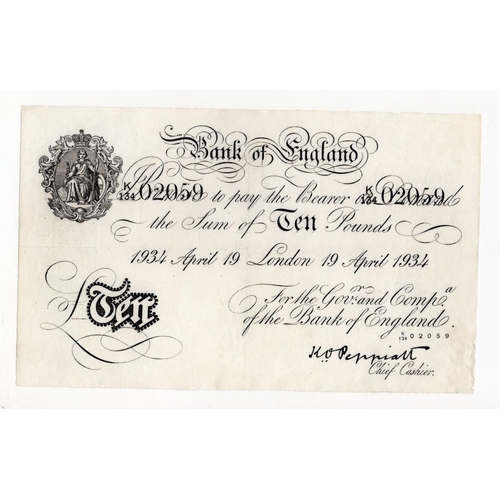 Bank of England
K/134 02059 I Promise to pay the Bearer on Demand K/134 02059
the Sum of Ten Pounds
1934 April 19 London 19 April 1934
For the Govr. and Compa.
of the Bank of England.
K/134 02059
£Ten
K O Peppiatt
Chief Cashier.